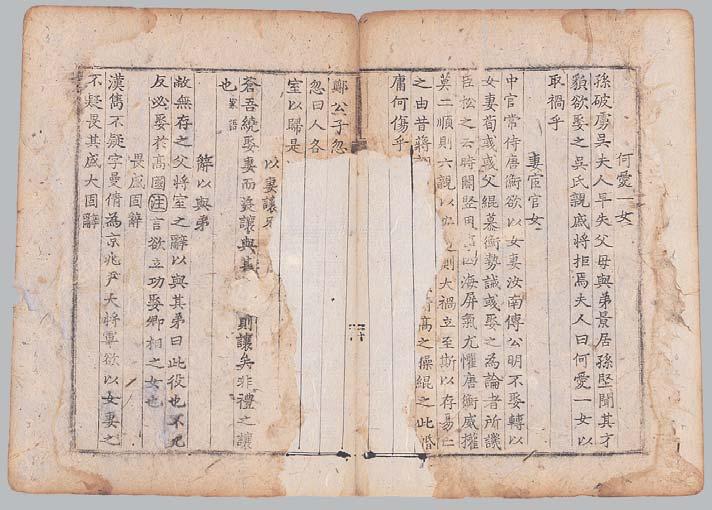 何愛一女
孫破虜吳夫人早失父母與弟景居孫堅聞其才
貌欲娶之吳氏親戚將拒焉夫人曰何愛一女以
取禍乎
妻宦官女
中官常侍唐衡欲以女妻汝南傅公明不娶轉以
女妻荀彧彧父緄慕衡勢誡彧娶之為論者所譏
臣松之云時閹竪用 四海屏氣尤懼唐衡威權
莫二順則六親以 則大禍立至斯以存易亡
之由昔蔣 高之操緄之此婚
庸何傷乎
鄭公子忽
忽曰人各
室以歸是
以妻讓
蒼吾繞娶妻而美讓與其 則讓矣非禮之讓
也家語
辭以與弟
敝無存之父將室之辭以與其弟曰此役也不死
反必娶於高國注言欲立功娶卿相之女也
畏盛固辭
漢雋不疑字曼倩為京兆尹大將軍欲以女妻之
不疑畏其盛大固辭